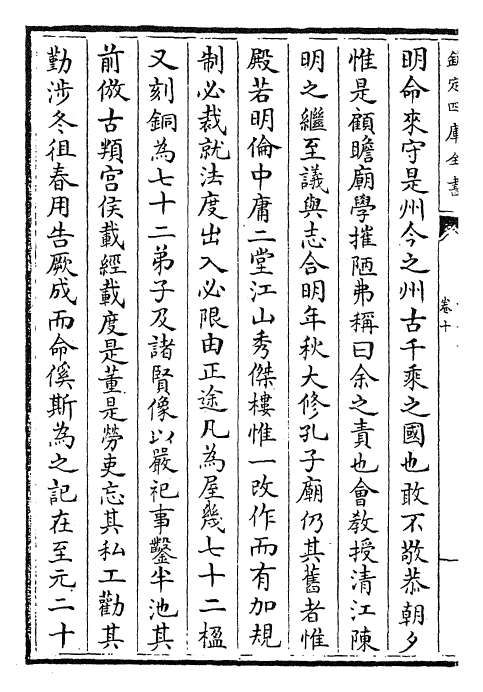 欽定四庫全書
卷十
明命來守是州今之州古千乘之國也敢不敬恭朝夕
惟是顧瞻廟學摧陋弗稱曰余之責也會教授清江陳
明之繼至議與志合明年秋大修孔子廟仍其舊者惟
殿若明倫中庸二堂江山秀傑樓惟一改作而有加規
制必裁就法度出入必限由正途凡為屋幾七十二楹
又刻銅為七十二弟子及諸賢像以嚴祀事鑿半池其
前倣古頖宮侯載經載度是董是勞吏忘其私工勸其
勤涉冬徂春用告厥成而命傒斯為之記在至元二十